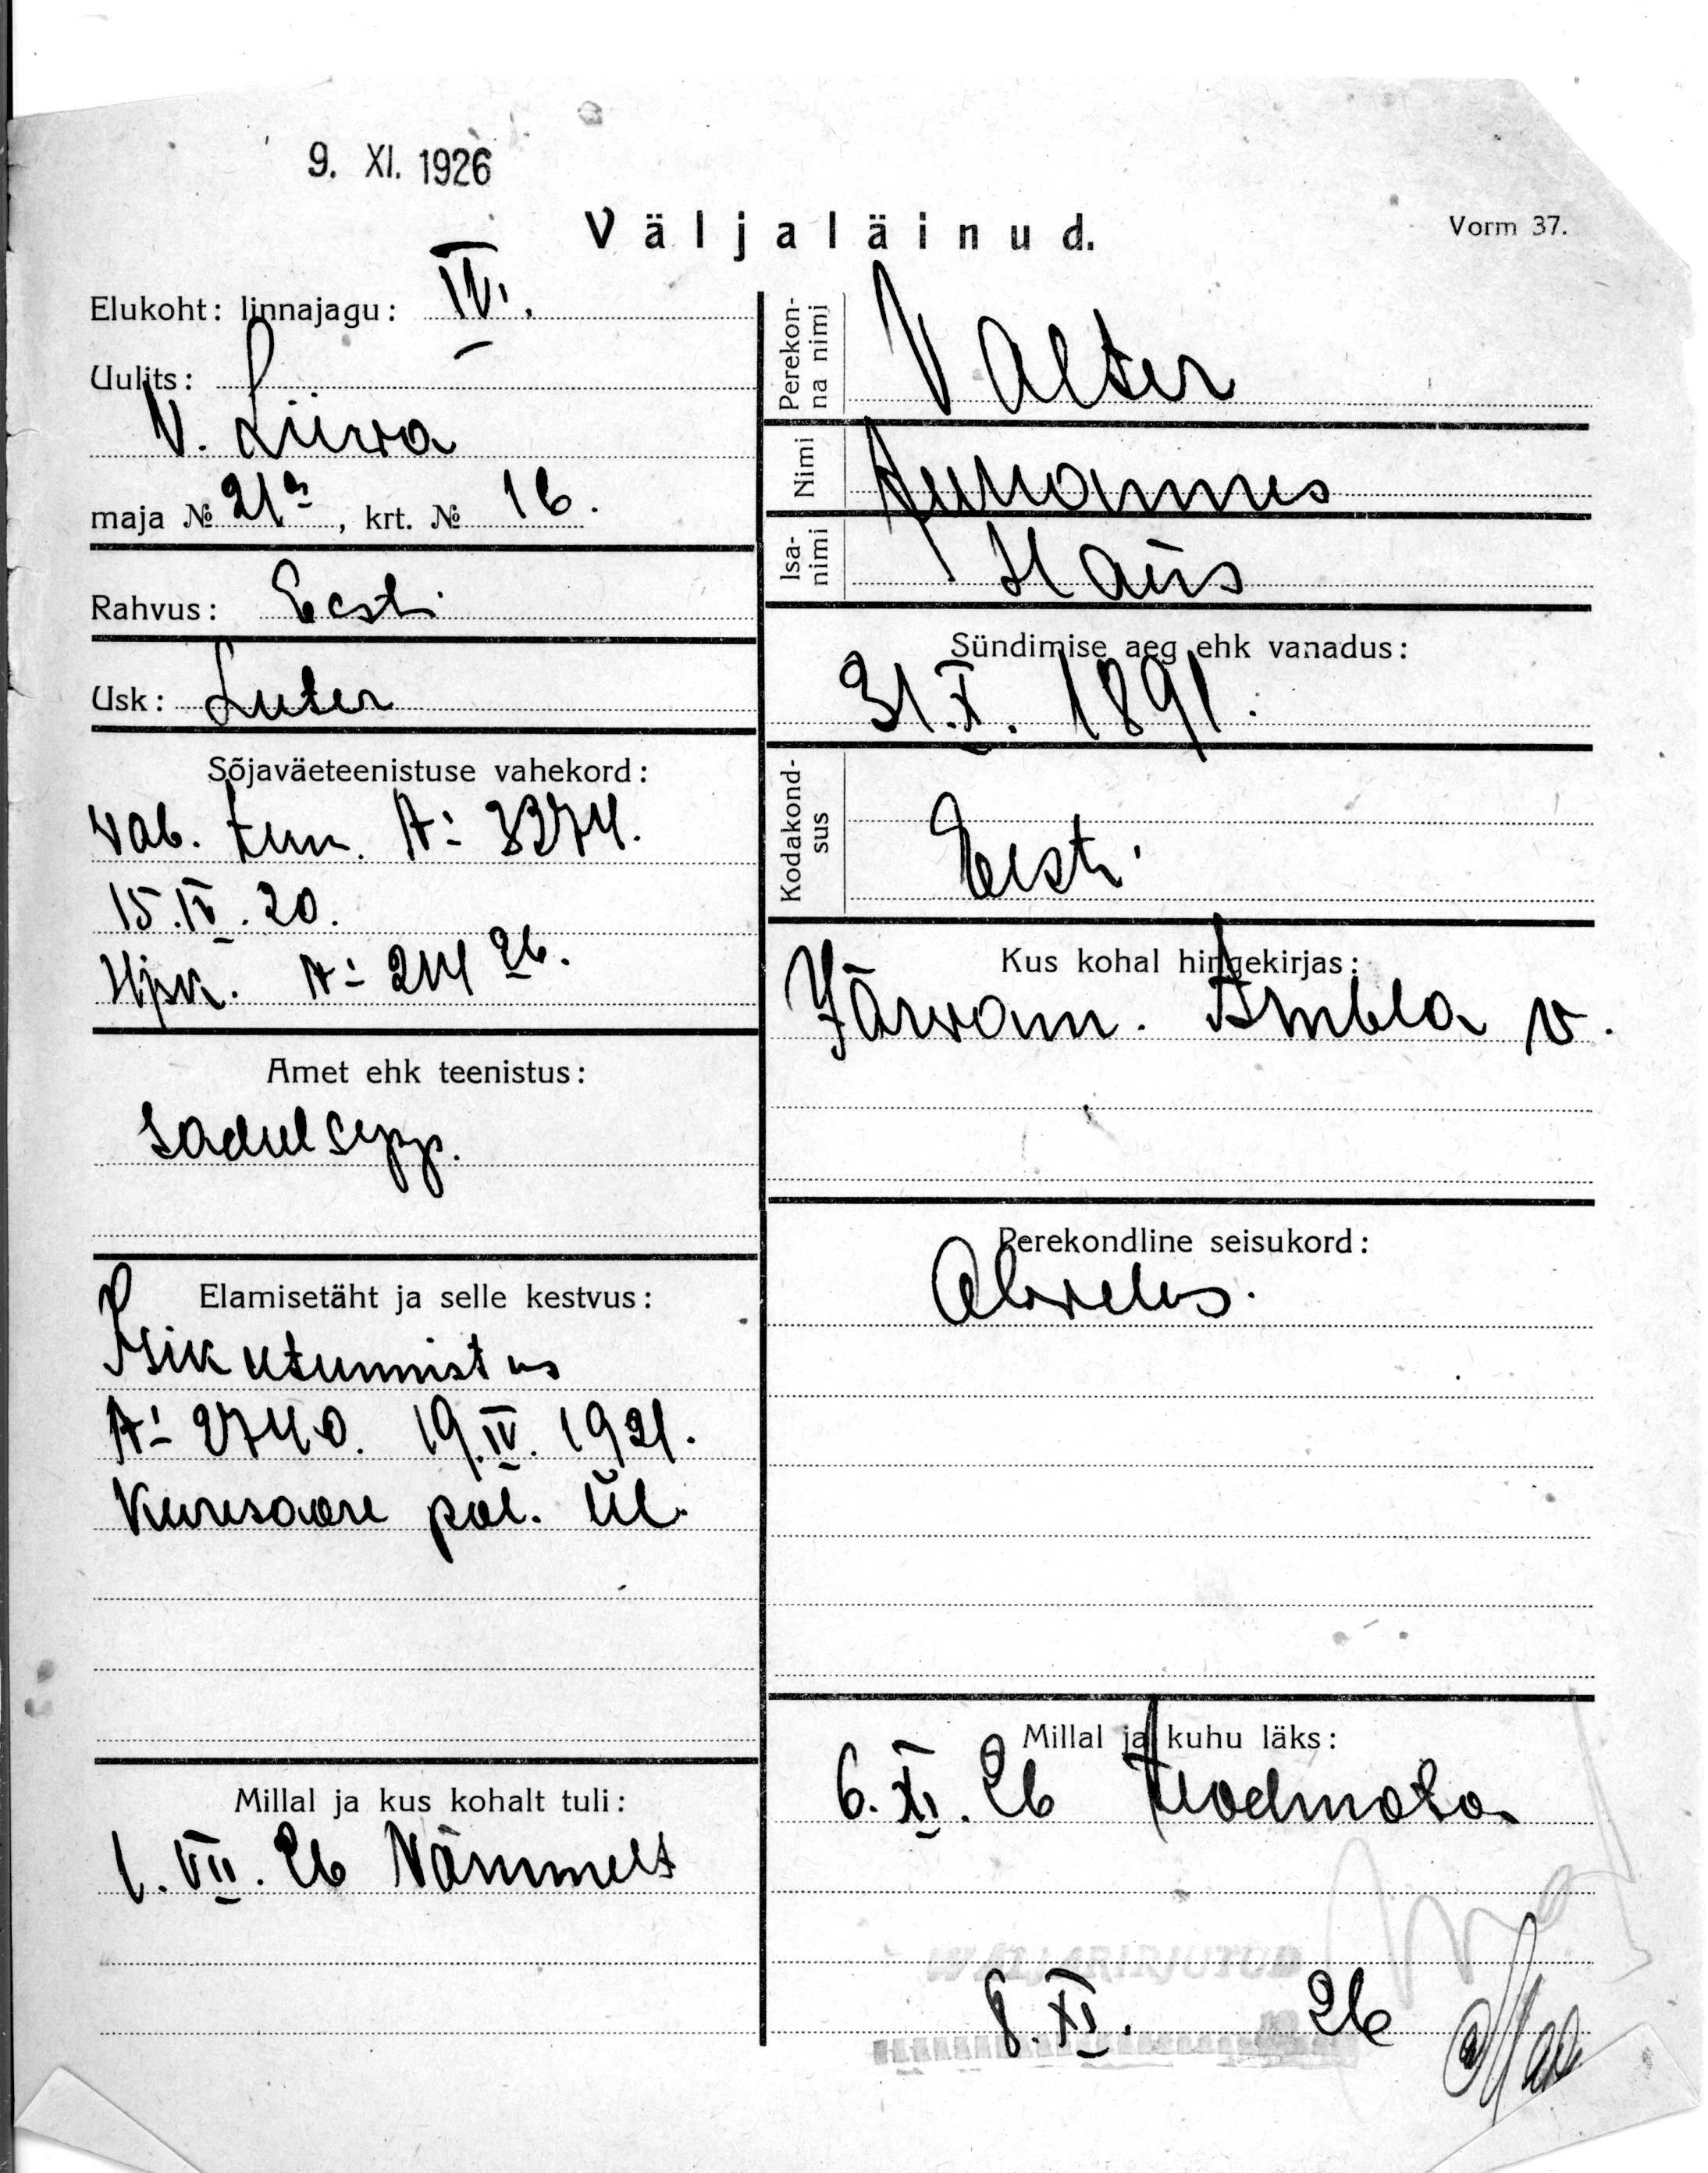 9. XI. 1926
Väljaläinud.
Vorm 37.
Elukoht: linnajagu: IV.
Uulits:
V. Liiva
maja № 21a, krt. № 16.
Rahvus: Eesti
Usk: Luter
Sõjaväeteenistuse vahekord:
Vab. tun. № 3274.
15.IV.20.
Hjsk. № 214 26.
Amet ehk teenistus:
Sadulsepp.
Elamisetäht ja selle kestvus:
Isikutunnistus
№ 2740. 19.IV.1921.
Kuresaare pol. ül.
Millal ja kus kohalt tuli:
1.VII.26 Nõmmelt
Perekonna nimi
Valter
Nimi
Juhannes
Isanimi
Hans
Sündimise aeg ehk vanadus:
31.X.1891.
Kodakondsus
Eesti
Kus kohal hingekirjas:
Järvam. Ambla v.
Perekondline seisukord:
Abielus.
Millal ja kuhu läks:
6.XI.26
VÄLJAKIRJUTUD
8.XI. 26